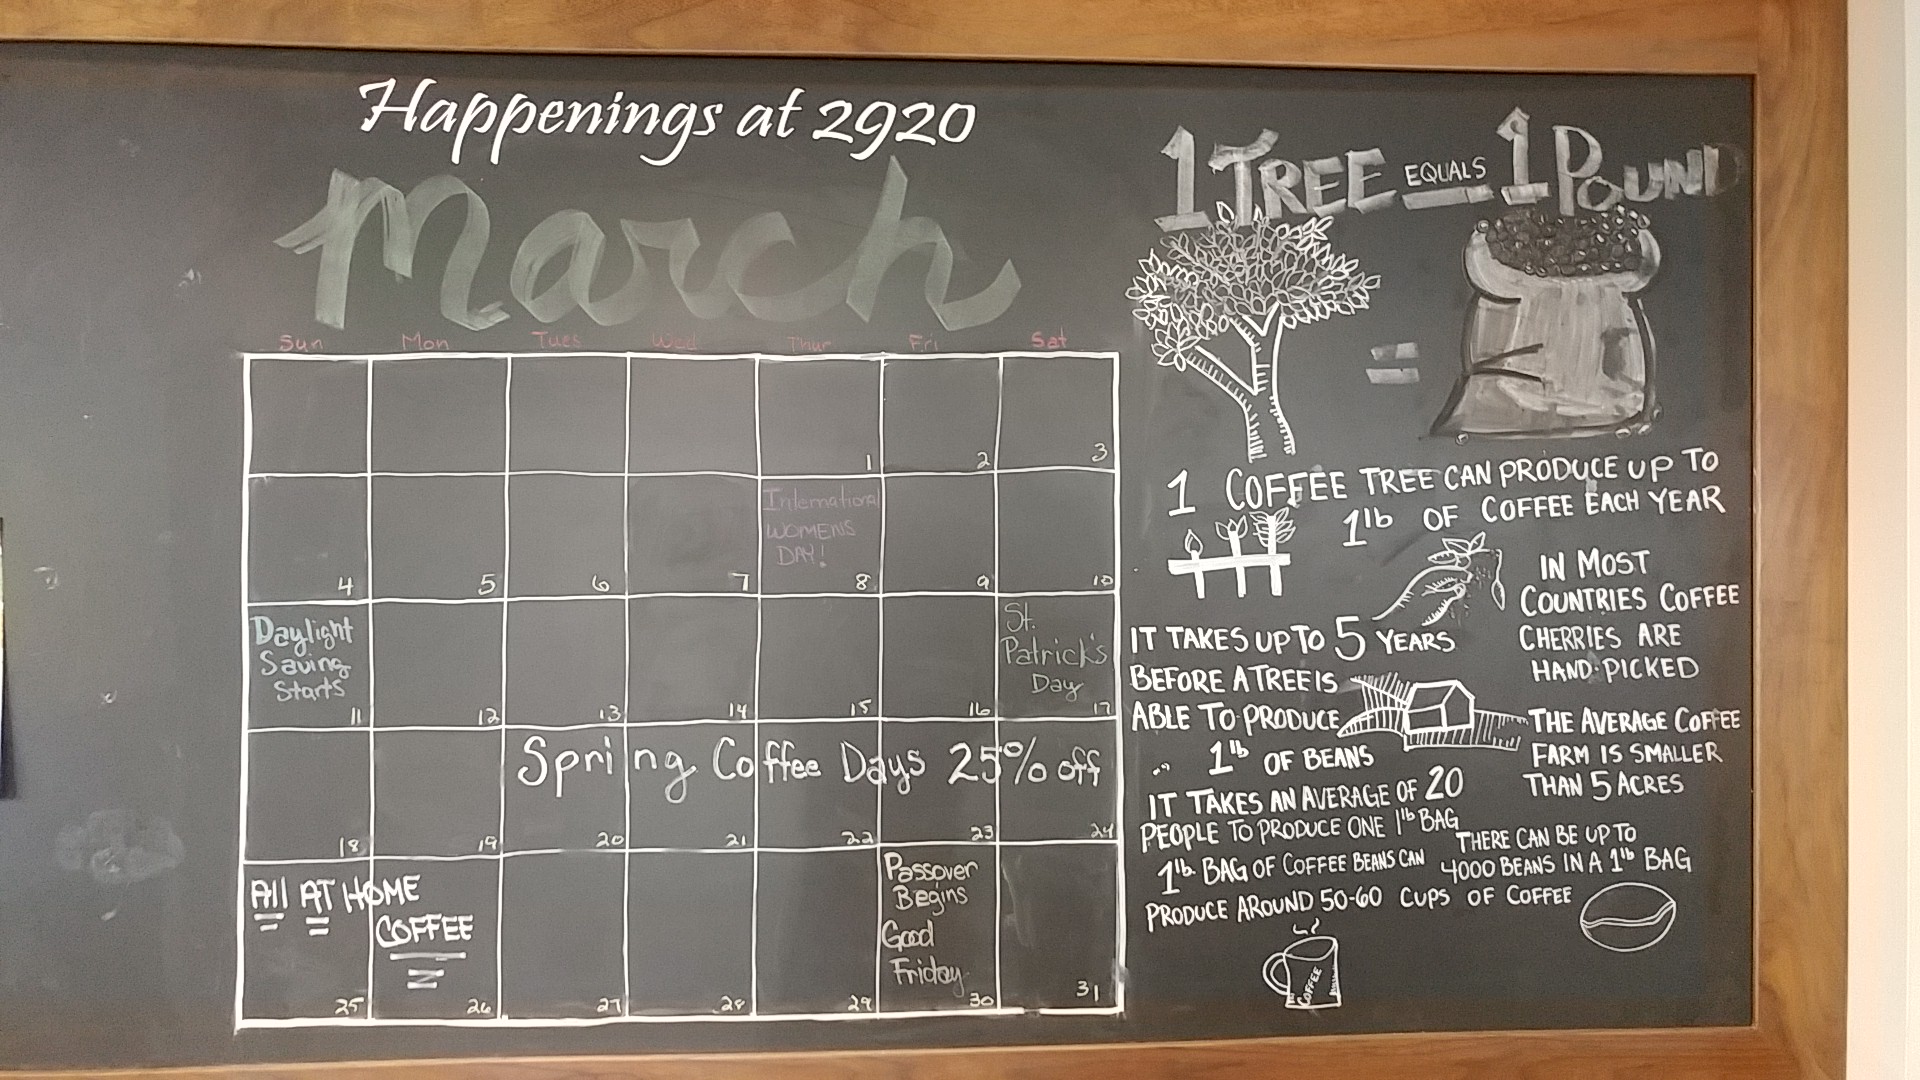 Happenings at 2920
March
Sun Mon Tues Wed Thur Fri Sat
1 2 3
International
WOMENS
DAY!
4 5 6 7 8 9 10
Daylight
Saving
Starts
St.
Patrick's
Day
11 12 13 14 15 16 17
Spring Coffee Days 25% off
18 19 20 21 22 23 24
All AT HOME
COFFEE
Passover
Begins
Good
Friday
25 26 27 28 29 30 31
1 TREE EQUALS 1 POUND
=
1 COFFEE TREE CAN PRODUCE UP TO
1lb OF COFFEE EACH YEAR
IN MOST
COUNTRIES COFFEE
CHERRIES ARE
HAND-PICKED
IT TAKES UP TO 5 YEARS
BEFORE A TREE IS
ABLE TO PRODUCE
1lb OF BEANS
THE AVERAGE COFFEE
FARM IS SMALLER
THAN 5 ACRES
IT TAKES AN AVERAGE OF 20
PEOPLE TO PRODUCE ONE 1lb BAG
THERE CAN BE UP TO
4000 BEANS IN A 1lb BAG
1lb BAG OF COFFEE BEANS CAN
PRODUCE AROUND 50-60 CUPS OF COFFEE
COFFEE